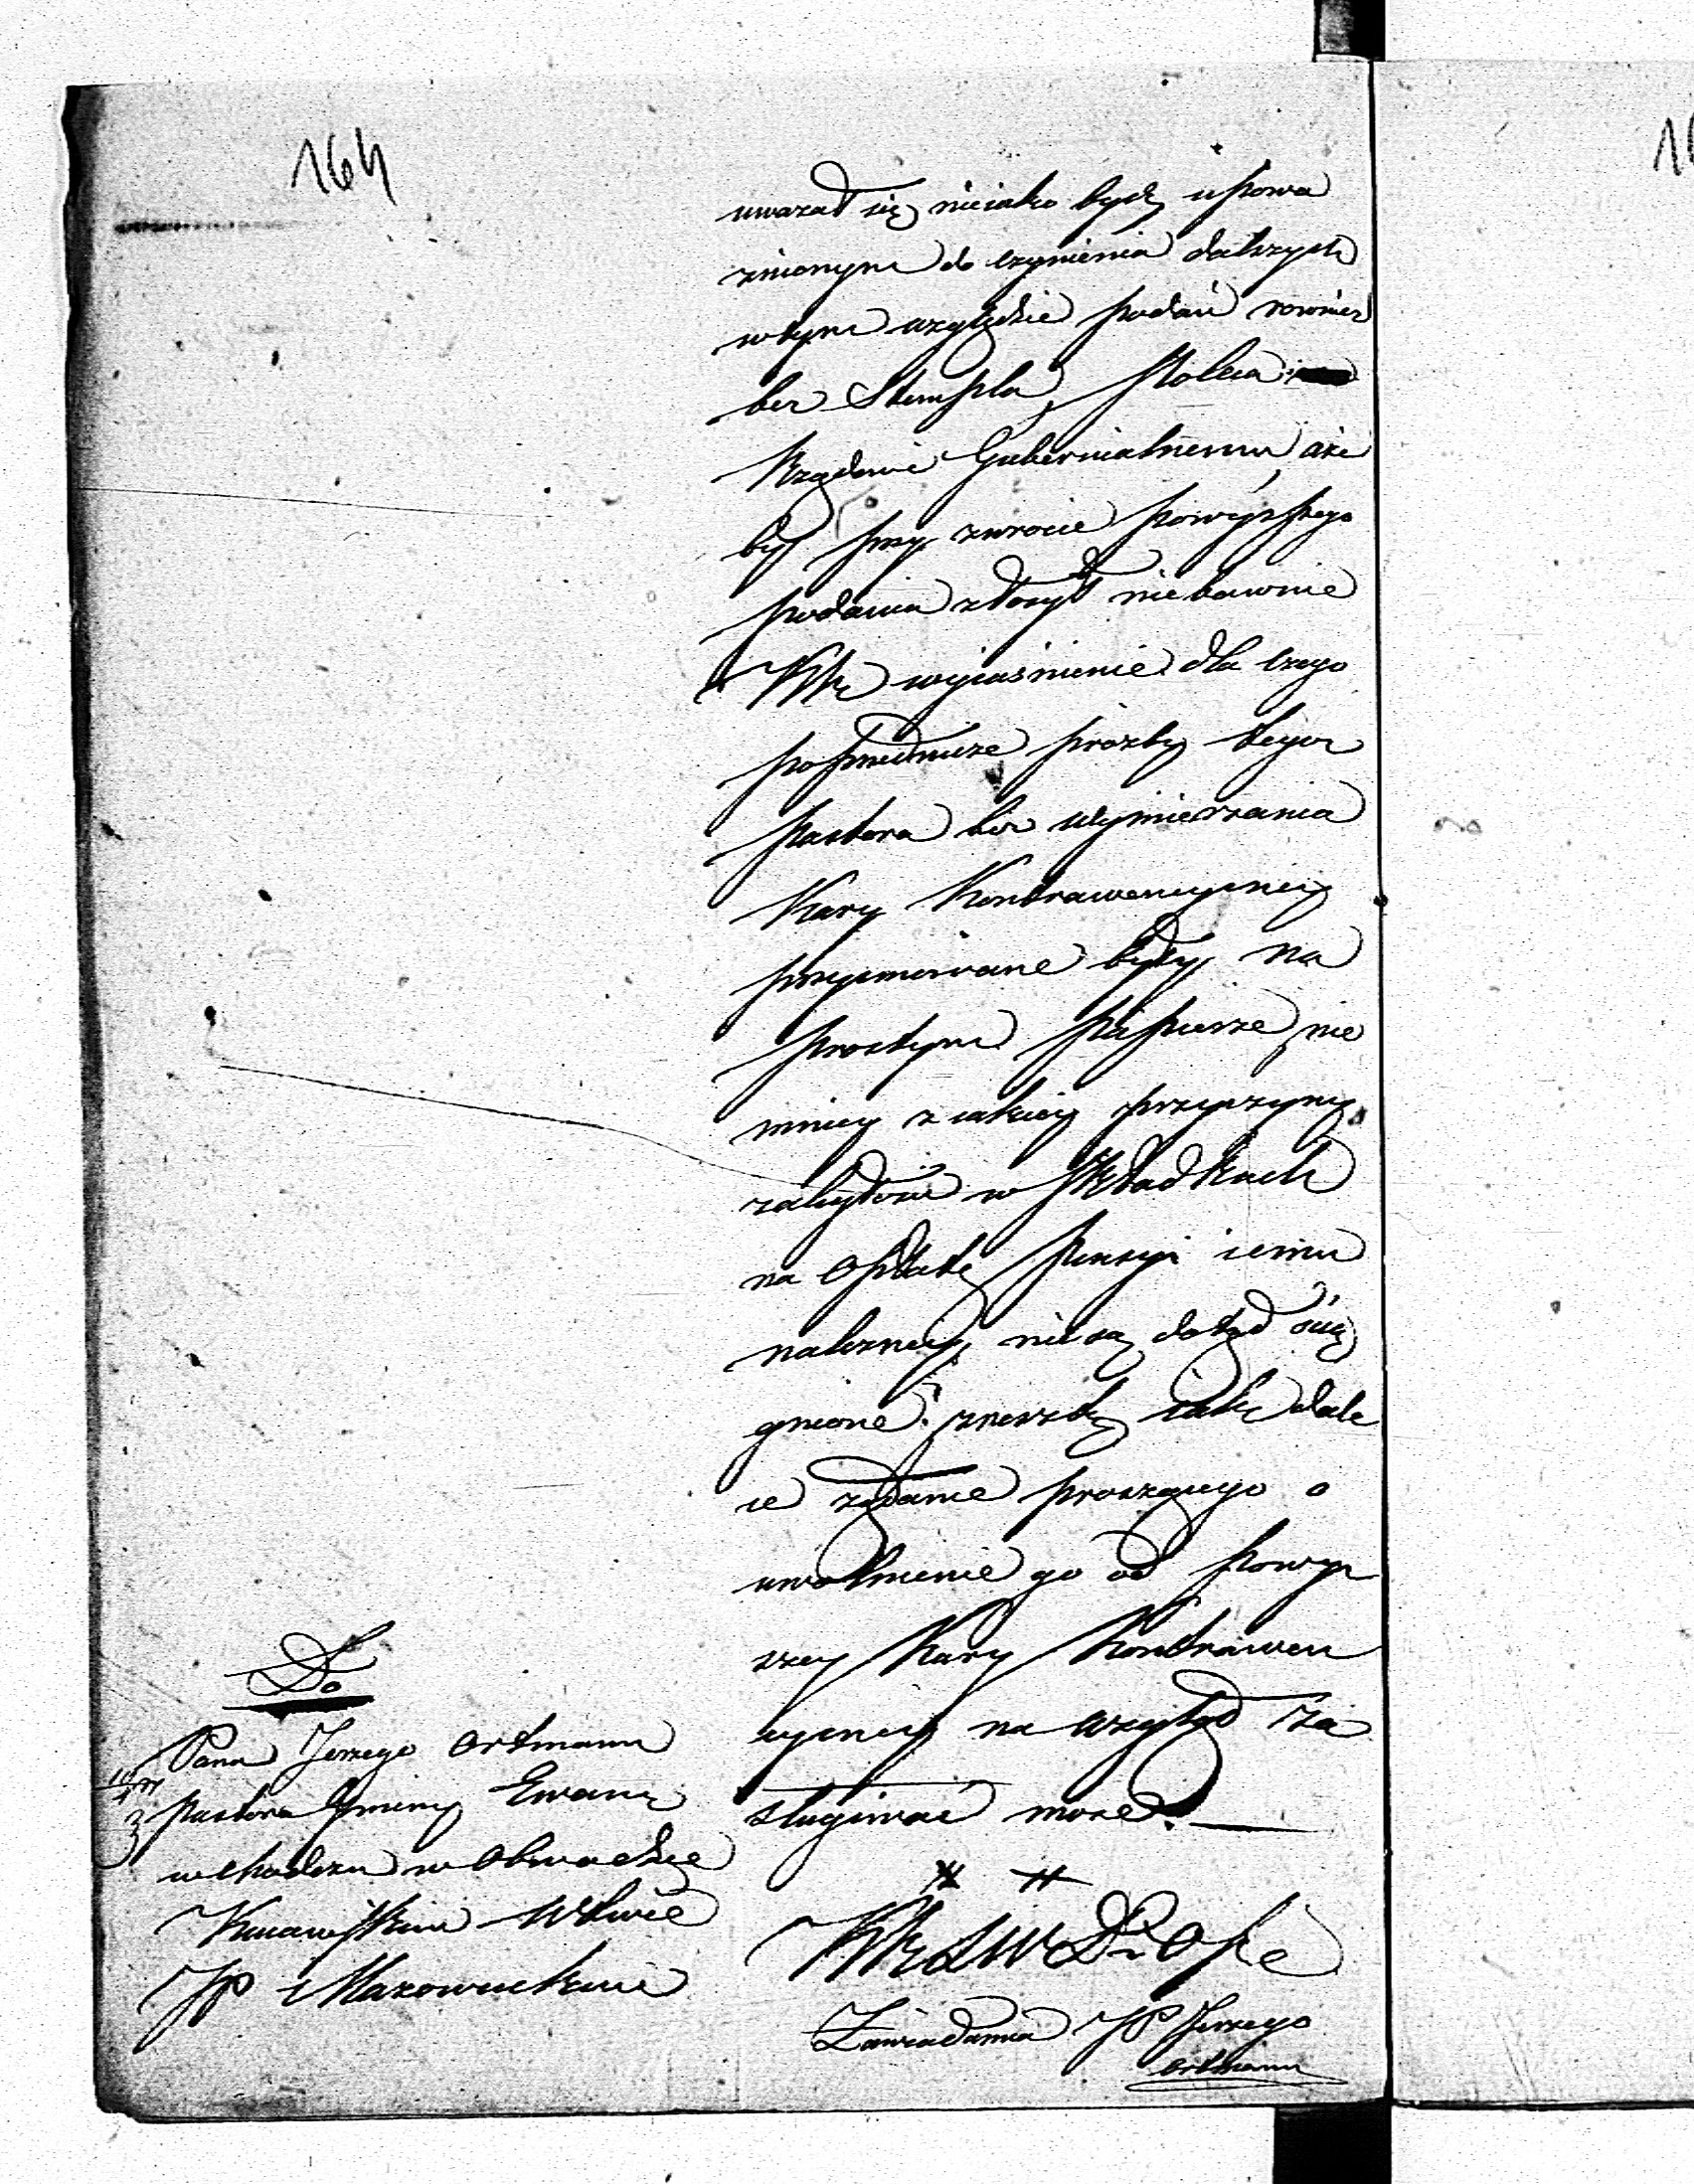 164
uważał się nieiako bydź upowa
żnionym do czynienia dalszych
w tym względzie podań rownież
bez Stempla, poleca
Rządowi Gubernialnemu aże
by przy zwrocie powyższego
podania złożył niebawnie
KRz wyiaśnienie dla czego
poprzednicze prozby tegoż
Pastora bez wymierzania
Kary Kontrawencyiney
przyimowane były na
prostym papierze nie
mniey z iakiey przyczyny
zaległości w składkach
na opłatę pensyi iemu
należney nie są dotąd ścią
gnione. zresztą iak dale
ce żądanie proszącego o
uwolnienie go od powyż
szey Kary Kontrawen
cyiney na wzgląd za
sługiwać może.
Do
Pana Jerzego Ortmann
Pastora Gminy Ewang
w Chodczu w Obwodzie
Kuiawskim Wtwie
JP Mazowieckie
Zawiadamia JP Jerzego
Ortmann